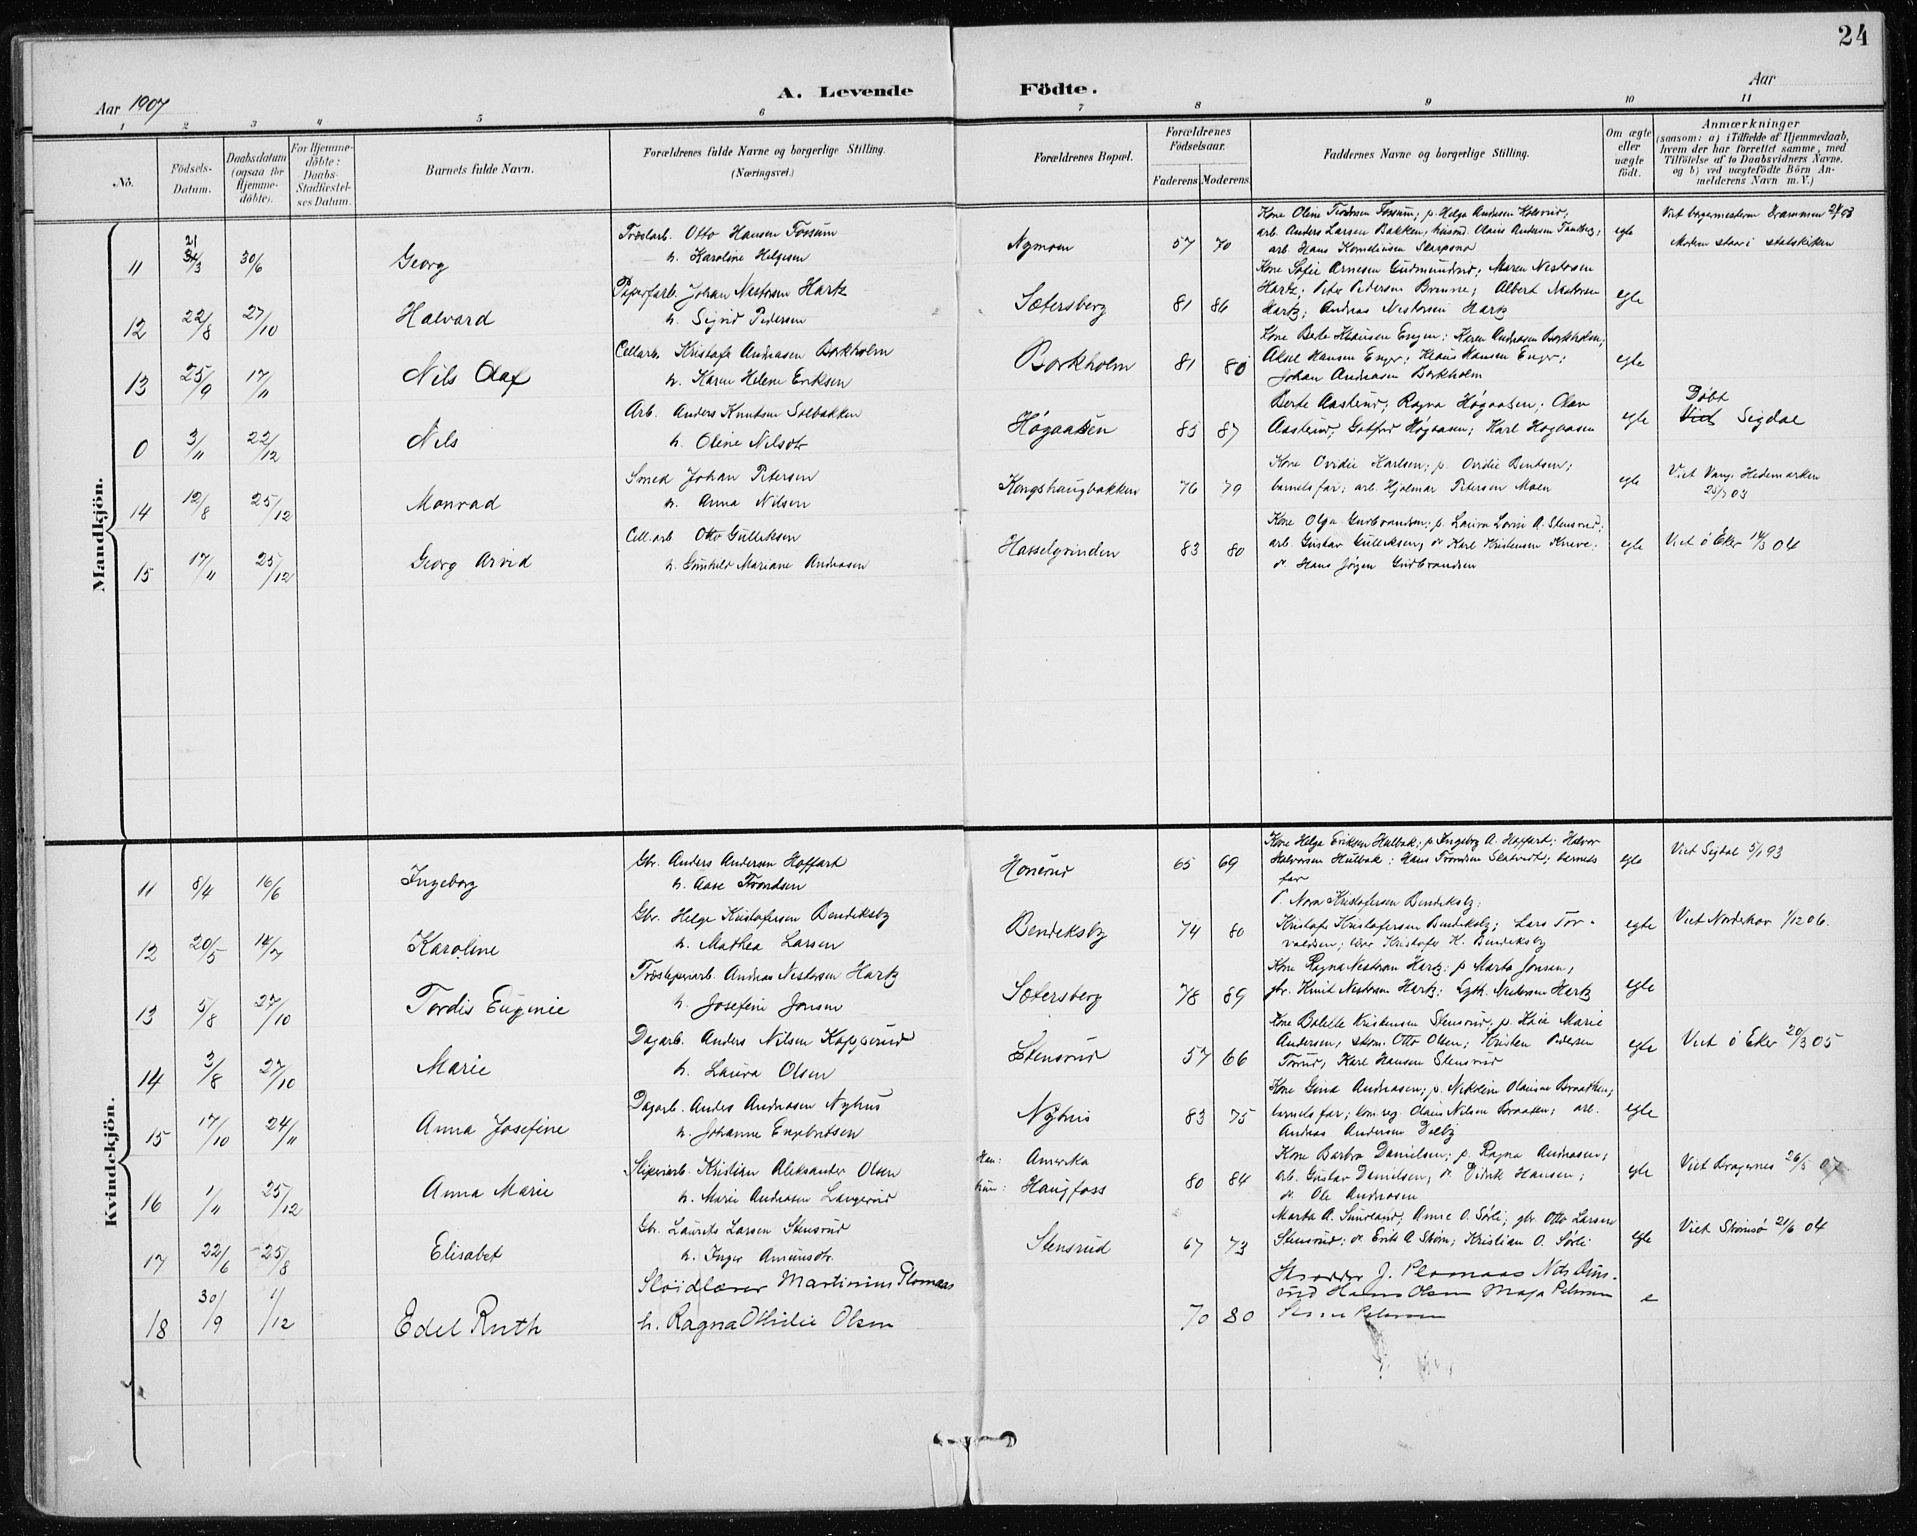 24
Aar 1907
A. Levende Födte.
Aar
1 2 3 4 5 6 7 8 9 10 11
No.
Födsels-Datum.
Daabsdatum (ogsaa for Hjemme-döbte).
For Hjemme-döbte: Daabs-Stadfæstel-ses Datum.
Barnets fulde Navn.
Forældrenes fulde Navne og borgerlige Stilling. (Næringsvei.)
Forældrenes Bopæl.
Forældrenes Födselsaar.
Faderens. Moderens.
Faddernes Navne og borgerlige Stilling.
Om ægte eller uægte födt.
Anmærkninger (saasom: a) i Tilfælde af Hjemmedaab, hvem der har forrettet samme, med Tilföielse af to Daabsvidners Navne, og b) ved uægtefödte Börn An-melderens Navn m. V.)
Mandkjön.
11 21/3 30/6 Georg
Otto Hansen Fossum
h. Karoline Helgesen
Nymoen 57 70
Kone Oline Fossum; p. Helga Andersen
arb. Anders Larsen Bakken, Olaus Andersen
arb. Hans Korneliusen
egte
Viet borgermesteren Drammen
Moderen staar i statskirken
12 22/8 27/10 Halvard
Papirfarb. Johan Nestorsen Hartz
h. Sigrid Pedersen
Sætersberg 81 86
Kone Sofie Arnesen Gudmundsrud; Maren Nestorsen
Hartz; Peter Pedersen; Albert Nestorsen
Hartz; Andreas Nestorsen Hartz
egte
13 25/9 17/11 Nils Olaf
Cellarb. Kristofe Andreasen Borkholm
h. Karen Helene Eriksen
Borkholm 81 80
Kone Berte Klausen Enger; Karen Andreasen Borkholm;
Aksel Hansen Enger; Klaus Hansen Enger;
Johan Andreasen Borkholm
egte
0 3/11 22/12 Nils
Arb. Anders Knutsen Solbakken
h. Oline Nilsdtr
Høgaasen 83 87
Berte Aasterud; Ragna Høgaasen; Olav
Aasterud; Høgaasen; Karl Høgaasen
egte
Døbt
Viet Sigdal
14 12/8 25/12 Monrad
Smed Johan Petersen
h. Anna Nilsen
Kongshaugbakken 76 79
Kone Ovidie Karlsen; p. Ovidie Bentsen;
barnets far; arb. Hjalmar Petersen Moen
egte
Viet Vang Hedemarken
03
15 17/11 25/12 Georg Arvid
Cell.arb. Otto Gulliksen
h. Gunhild Mariane Andreasen
Hasselgrinden 83 80
Kone Olga Gudbrandsen; p. Laura A. Stensrud;
arb. Gustav Gulliksen, do Karl Kristensen
do Hans Jørgen Gudbrandsen
egte
Viet ö Eker 04
Kvindekjön.
11 8/4 16/6 Ingeborg
Gbr. Anders Andersen Hoffart
h. Aase Trondsen
Honerud 65 69
Kone Helga Eriksen Hulbak; p Ingeborg A. Hoffart; Halvor
Halvorsen Hulbak; Hans Trondsen; barnets
far
egte
Viet Sigdal 93
12 20/5 14/7 Karoline
Gbr. Helge Kristofersen Bendiksby
h. Mathea Larsen
Bendiksby 74 80
P. Nora Kristofersen Bendiksby;
Kristofe Kristofersen Bendiksby; Lars Tor-
valdsen; Kristofe K. Bendiksby
egte
Viet Norderhov 1/12 06.
13 5/8 27/10 Tordis Eugenie
Træsliperiarb. Andreas Nestorsen Hartz
h. Josefine Jonsen
Sætersberg 78 89
Kone Ragna Nestorsen Hartz; p Marta Jonsen;
gbr. Knut Nestorsen Hartz; Nestorsen Hartz
egte
14 3/8 27/10 Marie
Dagarb. Anders Nilsen Kopperud
h. Laura Olsen
Stensrud 57 66
Kone Bolette Kristensen Stensrud; p. Marie
Andersen; Otto Olsen; Kristen Pedersen
Torrud; Karl Hansen Stensrud
egte
Viet ö Eker 20/3 05
15 17/10 24/11 Anna Josefine
Dagarb. Anders Andreasen Nyhus
h. Johanne Engebretsen
Nyhus 83 75
Kone Gina Andreasen; p. Nikoline Olausen Braathen;
barnets far; Olaus Nilsen Braaten; arb.
Andreas Andersen Dalby
egte
16 1/11 25/12 Anna Marie
Sliperiarb. Kristian Aleksander Olsen
h. Marie Andreasen Langerud
Han: Amerika
Hun: Haugfoss
80 84
Kone Barbra Danielsen; p. Ragna Andreasen;
arb. Gustav Danielsen, do Didrik Hansen;
do Ole Andreasen
egte
Viet Bragernes 26/5 07
17 22/6 25/8 Elisabet
Gbr. Laurits Larsen Stensrud
h. Inger Amundsdtr.
Stensrud 67 73
Marta A. Sundland; Anne O. Sørli; gbr. Otto Larsen
Stensrud; do Erik A Strøm; Kristian O. Sørli
egte
Viet Strømsø 21/6 04
18 30/9 1/12 Edel Ruth
Sløidlærer Martinius Plomaas
h. Ragna Othilie Olsen
70 80
J. Plomaas Nils
Hans Olsen Maja Petersen
Petersen
e